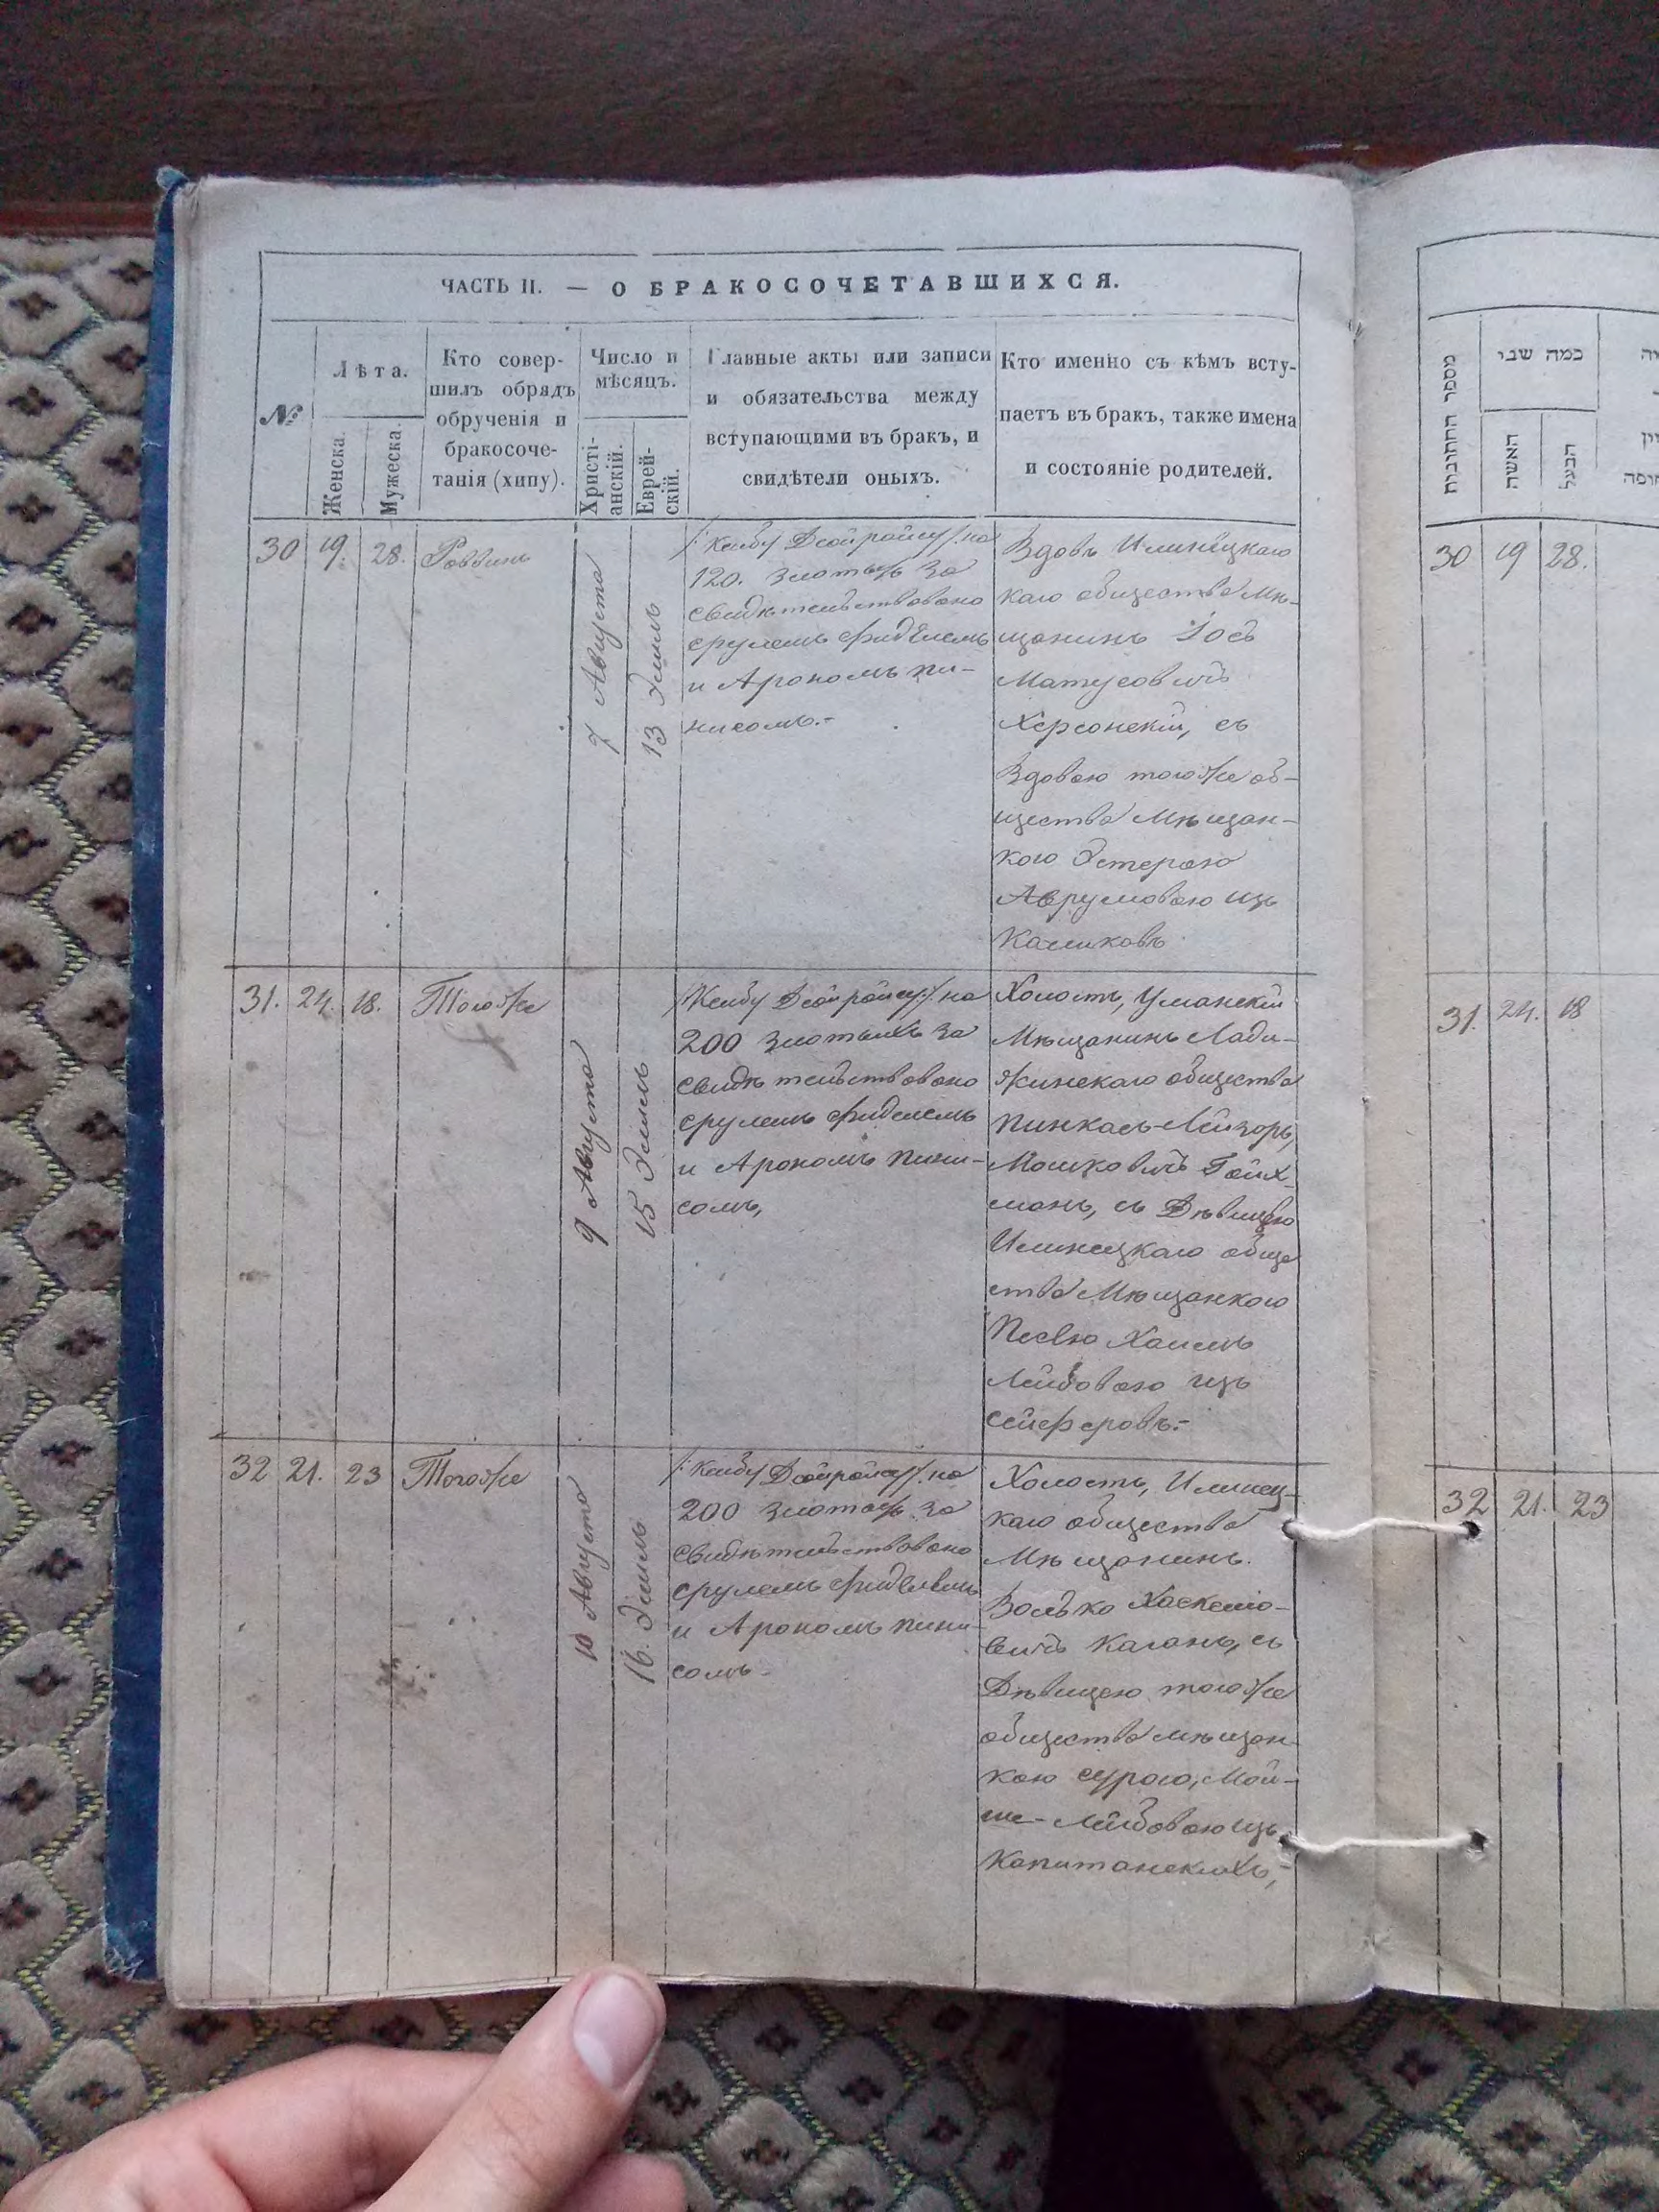 ЧАСТЬ II. — О БРАКОСОЧЕТАВШИХСЯ.
№
Лѣта.
Женска.
Мужеска.
Кто совер-
шилъ обрядъ
обрученія и
бракосоче-
танія (хипу).
Число и
мѣсяцъ.
Христі-
анскій.
Еврей-
скій.
Главные акты или записи
и обязательства между
вступающими въ бракъ, и
свидѣтели оныхъ.
Кто именно съ кѣмъ всту-
паетъ въ бракъ, также имена
и состояніе родителей.
30
19.
28.
Раввинъ
7 Августа
13 Элиль
на
120. злотыхъ за
свидѣтельствовано
срулемъ
и Арономъ пи-
нисомъ.-
Вдовъ Илинецкаго
каго общества Мѣ-
щанинъ Іось
Матусовичъ
Херсонскій, съ
Вдовою того же об-
щества Мѣщан-
кою Эстерою
Аврумовою изъ
31.
24.
18.
Того же
9 Августа
15 Элиль
на
200 злотыхъ за
свидѣтельствовано
срулемъ
и Арономъ пини-
сомъ,
Холостъ, Уманскій
Мѣщанинъ Лади-
жинскаго общества
Пинкасъ-Лейзоръ,
Мошковичъ Гойх-
манъ, съ Дѣвицею
Илинецкаго обще
ства Мѣщанкою
Песею Хаимъ
Лейбовою изъ
32
21.
23
Того же
10 Августа
16. Элиль
на
200 злотыхъ за
свидѣтельствовано
срулемъ
и Арономъ пини-
сомъ.
Холостъ, Илинец-
каго общества
Мѣщанинъ.
Волько Хаскеліо-
вичъ Каганъ, съ
Дѣвицею того же
общества мѣщан-
кою сурою, Мой-
ше-Лейбовою изъ
Капитанскихъ,-
מספר החתונות
כמה שני
האשה
הבעל
30
19
28.
31.
24.
18
32
21.
23